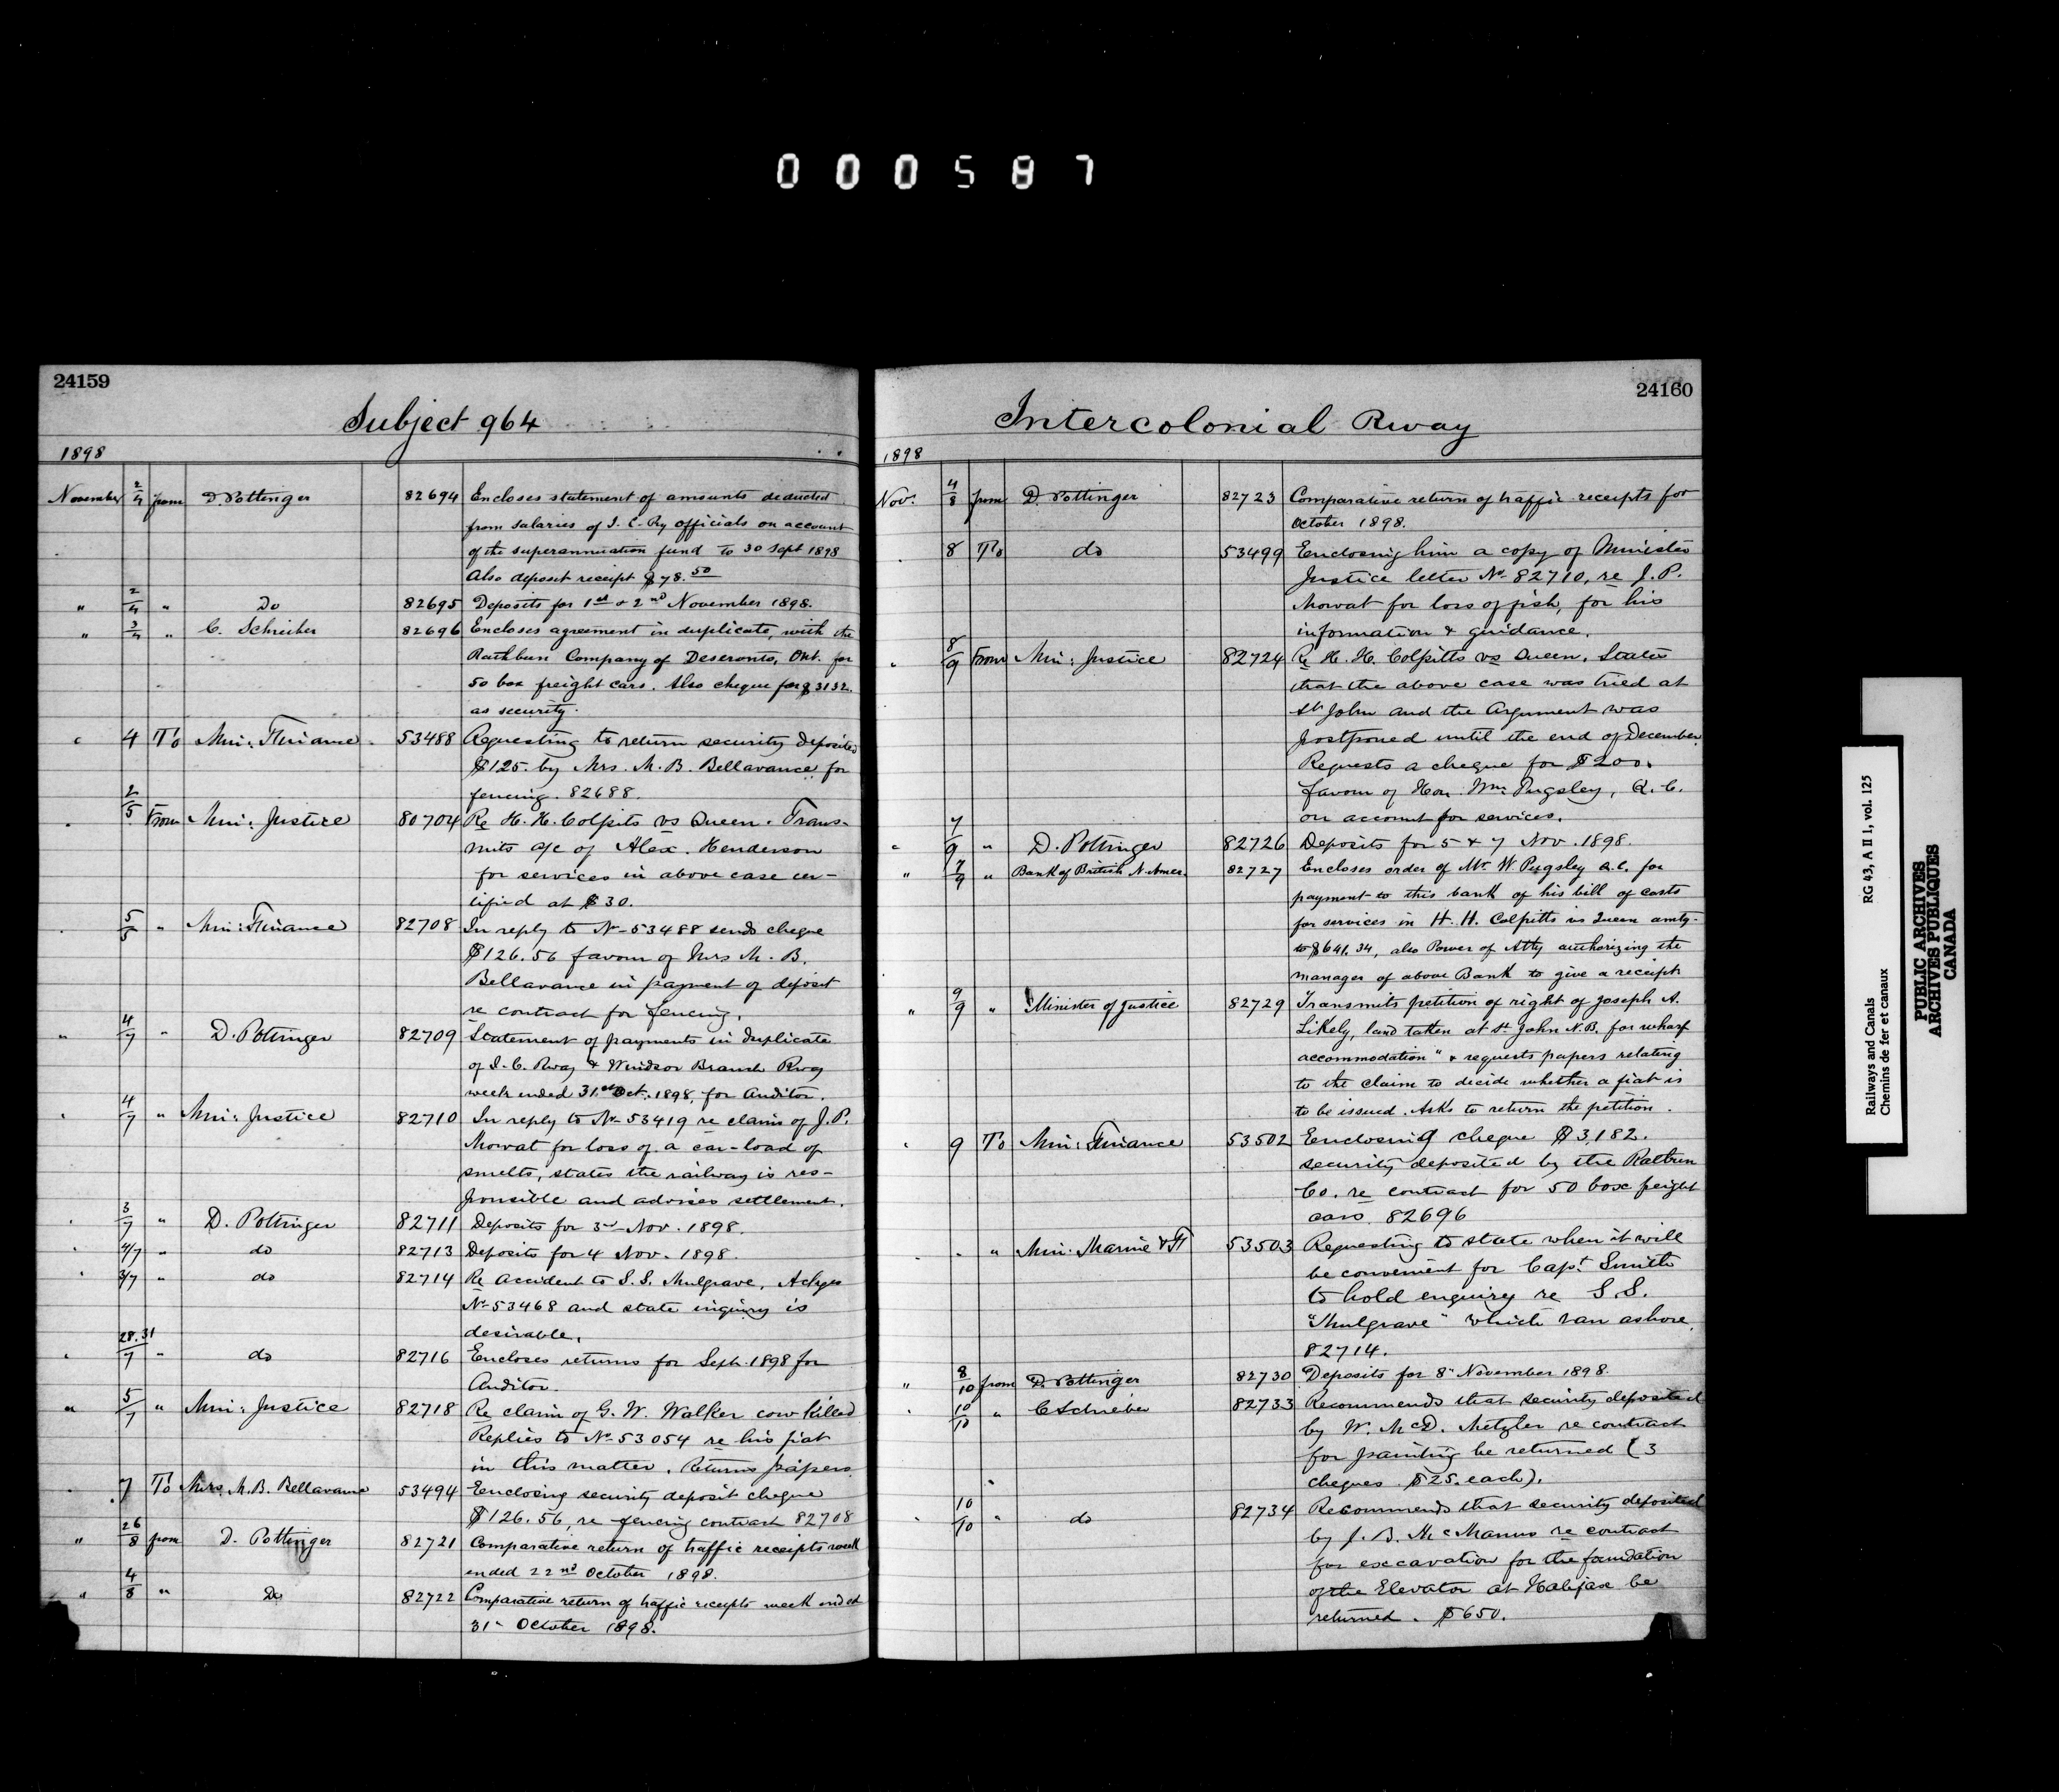 000587
24159
Subject 964
1898
November 2/4 from D. Pottinger 82694 Encloses statement of amounts deducted
from salaries of I. C. Ry officials on account
of the superannuation fund to 30 Sept 1898
Also deposit receipt $78.50
" 2/4 " Do 82695 Deposits for 1st & 2nd November 1898.
" 3/4 " C. Schreiber 82696 Encloses agreement in duplicate, with the
Rathbun Company of Deseronto, Ont. for
50 box freight cars. Also cheque for $3132.
as security.
" 4 To Min: Finance 53488 Requesting to return security deposited
$125. by Mrs. M. B. Bellavance for
fencing. 82688.
" 2/5 From Min: Justice 80704 Re H. H. Colpits vs Queen. Trans-
mits a/c of Alex. Henderson
for services in above case cer-
tified at $30.
" 5/5 " Min: Finance 82708 In reply to No 53488 sends cheque
$126.56 favour of Mrs M. B.
Bellavance in payment of deposit
re contract for fencing.
" 4/7 " D. Pottinger 82709 Statement of payments in duplicate
of I. C. Rway & Windsor Branch Rway
week ended 31st Oct. 1898, for Auditor.
" 4/7 " Min: Justice 82710 In reply to No 53419 re claim of J. P.
Mowat for loss of a car-load of
smelts, states the railway is res-
ponsible and advises settlement.
" 3/7 " D. Pottinger 82711 Deposits for 3rd Nov. 1898.
" 4/7 " do 82713 Deposits for 4 Nov. 1898.
" 3/7 " do 82714 Re accident to S. S. Mulgrave. Ackges
No 53468 and state inquiry is
desirable.
" 28.31/7 " do 82716 Encloses returns for Sept. 1898 for
Auditor.
" 5/7 " Min: Justice 82718 Re claim of G. W. Walker cow killed
Replies to No 53054 re his fiat
in this matter. Returns papers.
" 7 To Mrs. M. B. Bellavance 53494 Enclosing security deposit cheque
$126.56, re fencing contract 82708
" 26/8 from D. Pottinger 82721 Comparative return of traffic receipts week
ended 22nd October 1898.
" 4/8 " Do 82722 Comparative return of traffic receipts week ended
31st October 1898.
24160
Intercolonial Rway
1898
Nov. 4/8 from D. Pottinger 82723 Comparative return of traffic receipts for
October 1898.
" 8 To do 53499 Enclosing him a copy of Minister
Justice letter No 82710, re J. P.
Mowat for loss of fish, for his
information & guidance.
" 8/9 From Min: Justice 82724 Re H. H. Colpitts vs Queen. States
that the above case was tried at
St John and the Argument was
postponed until the end of December.
Requests a cheque for $200.
favour of Hon. Wm Pugsley, Q. C.
on account for services.
" 7/9 " D. Pottinger 82726 Deposits for 5 & 7 Nov. 1898.
" 7/9 " Bank of British N. Amer. 82727 Encloses order of Mr. W. Pugsley Q.C. for
payment to this bank of his bill of costs
for services in H. H. Colpitts vs Queen amtg-
to $641.34, also Power of Atty authorizing the
manager of above Bank to give a receipt
" 9/9 " Minister of Justice 82729 Transmits petition of right of Joseph A.
Likely, land taken at St John N.B. for wharf
accommodation" & requests papers relating
to the claim to decide whether a fiat is
to be issued. Asks to return the petition.
" 9 To Min: Finance 53502 Enclosing cheque $3,182.
security deposited by the Ratbun
Co. re contract for 50 box freight
cars. 82696
" " " Min: Marine & F 53503 Requesting to state when it will
be convenient for Capt Smith
to hold enquiry re S.S.
"Mulgrave" which ran ashore.
82714.
" 8/10 from D. Pottinger 82730 Deposits for 8" November 1898.
" 10/10 " C Schrieber 82733 Recommends that security deposited
by W. McD. Metzler re contract
for painting be returned (3
cheques $25. each).
" 10/10 " do 82734 Recommends that security deposited
by J. B. McManus re contract
for excavation for the foundation
of the Elevator at Halifax be
returned. $650.
Railways and Canals RG 43, A II 1, vol. 125
Chemins de fer et canaux
PUBLIC ARCHIVES
ARCHIVES PUBLIQUES
CANADA